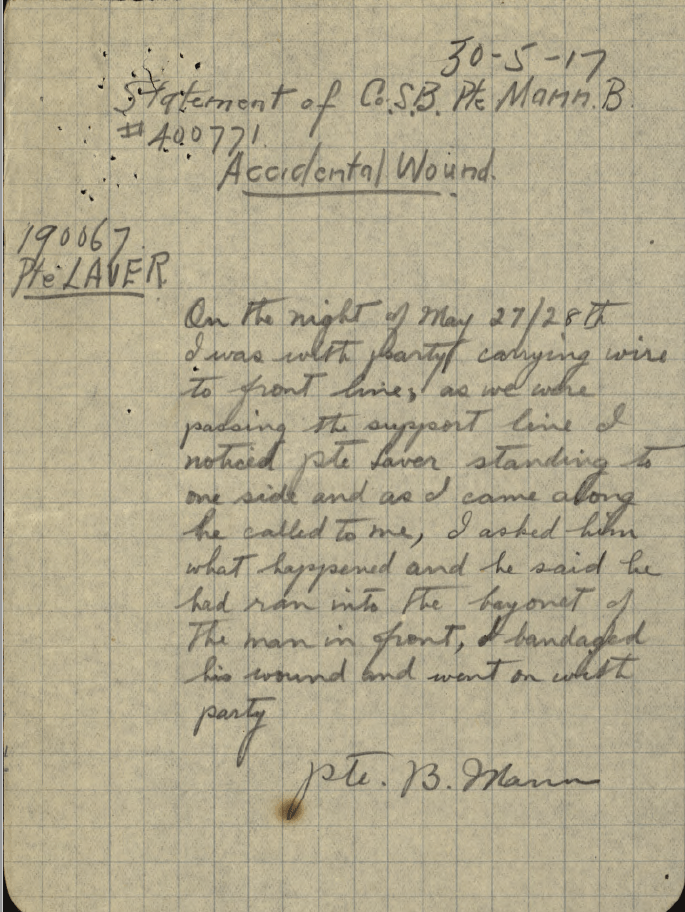 30-5-17
Statement of Co.S.B. Pte Mann. B.
#400771.
Accidental Wound.
190067.
Pte LAVER
On the night of May 27/28th
I was with party carrying wire
to front line, as we were
passing the support line I
noticed pte Laver standing to
one side and as I came along
he called to me, I asked him
what happened and he said he
had ran into the bayonet of
the man in front, I bandaged
his wound and went on with
party
pte. B. Mann